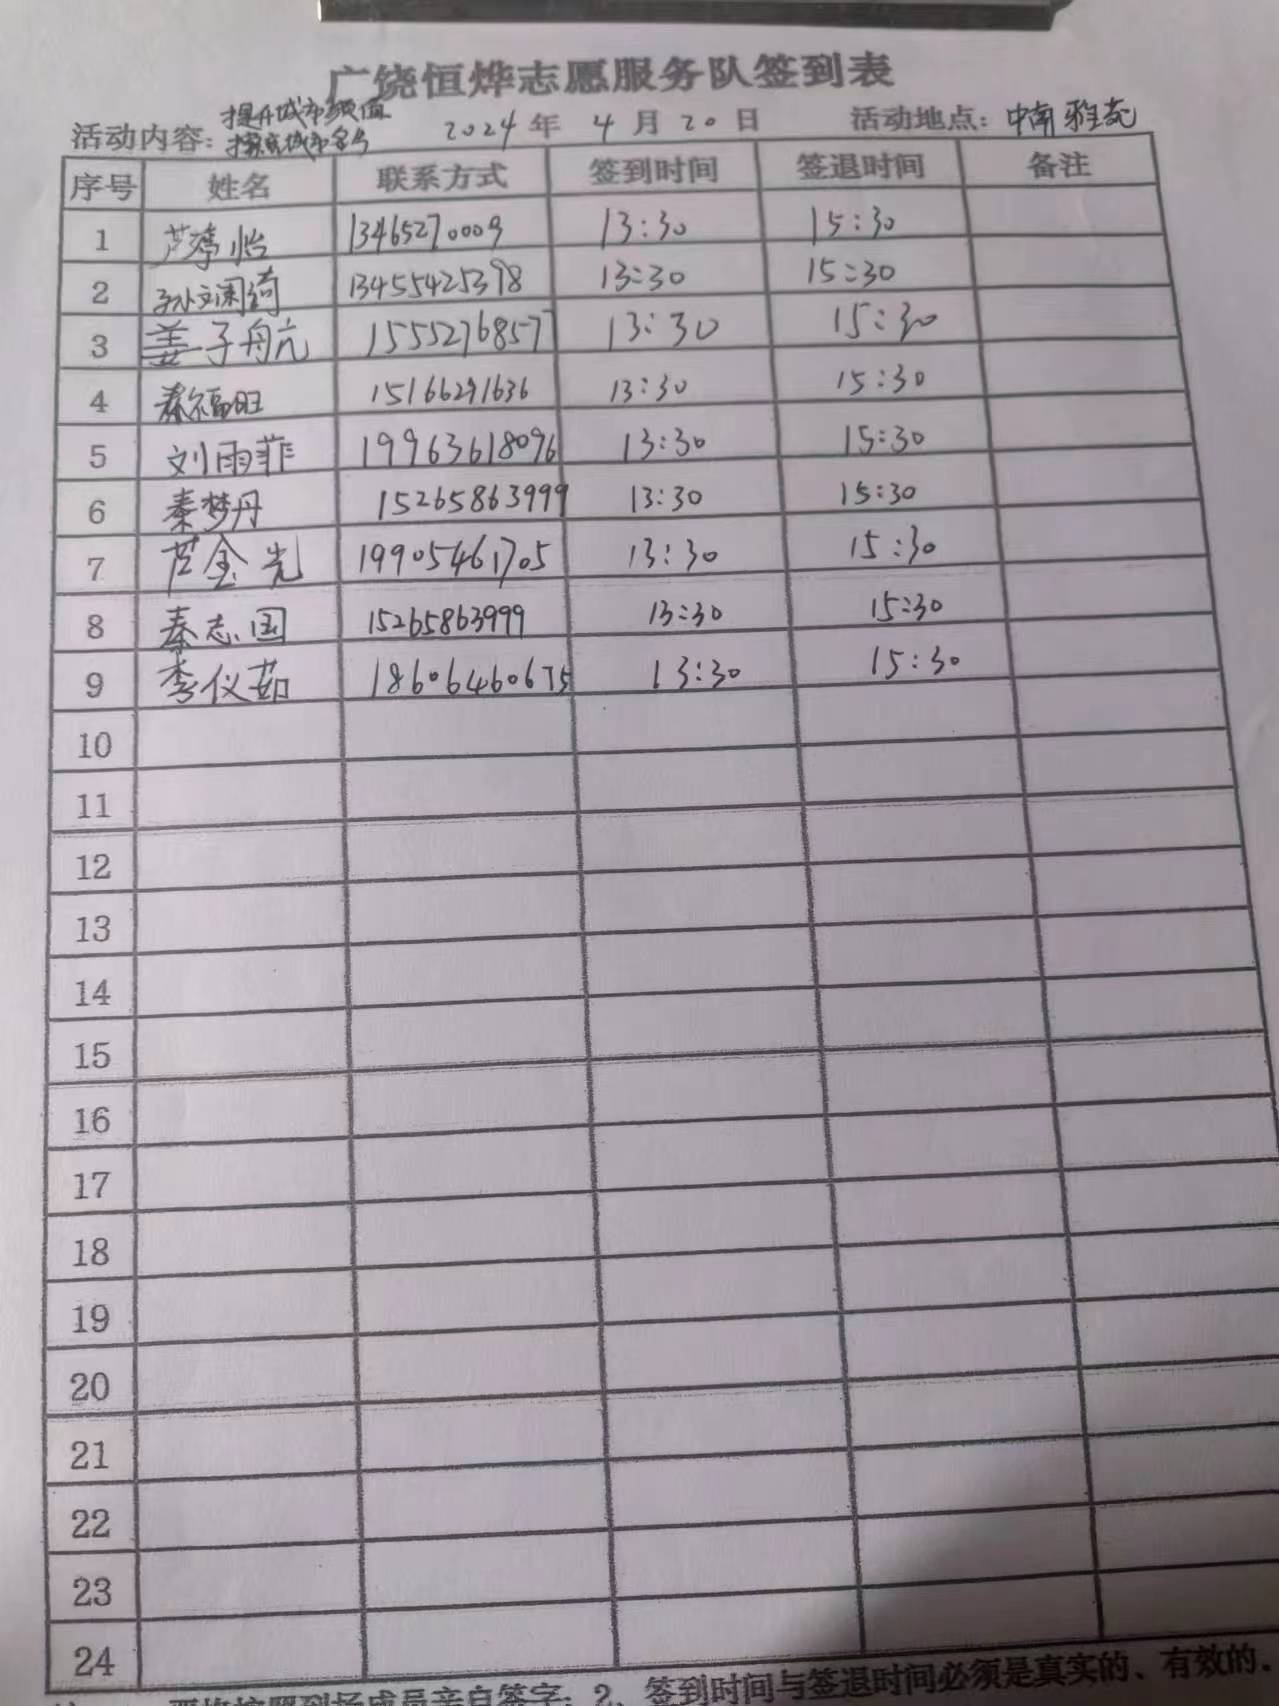 广饶恒烨志愿服务队签到表
活动内容: 提升城市颜值 2024年 4月20日 活动地点: 中南雅苑
城市
序号 姓名 联系方式 签到时间 签退时间 备注
1 芦 怡 13465270009 13:30 15:30
2 孙文闲绮 13455425398 13:30 15:30
3 姜子航 1555276857 13:30 15:30
4 秦福旺 15166291636 13:30 15:30
5 刘雨菲 19963618096 13:30 15:30
6 秦梦丹 15265863999 13:30 15:30
7 芦金光 19905461705 13:30 15:30
8 秦志国 15265863999 13:30 15:30
9 李仪茹 18606460675 13:30 15:30
10
11
12
13
14
15
16
17
18
19
20
21
22
23
24
严格按照到场成员亲自签字; 2、签到时间与签退时间必须是真实的、有效的.